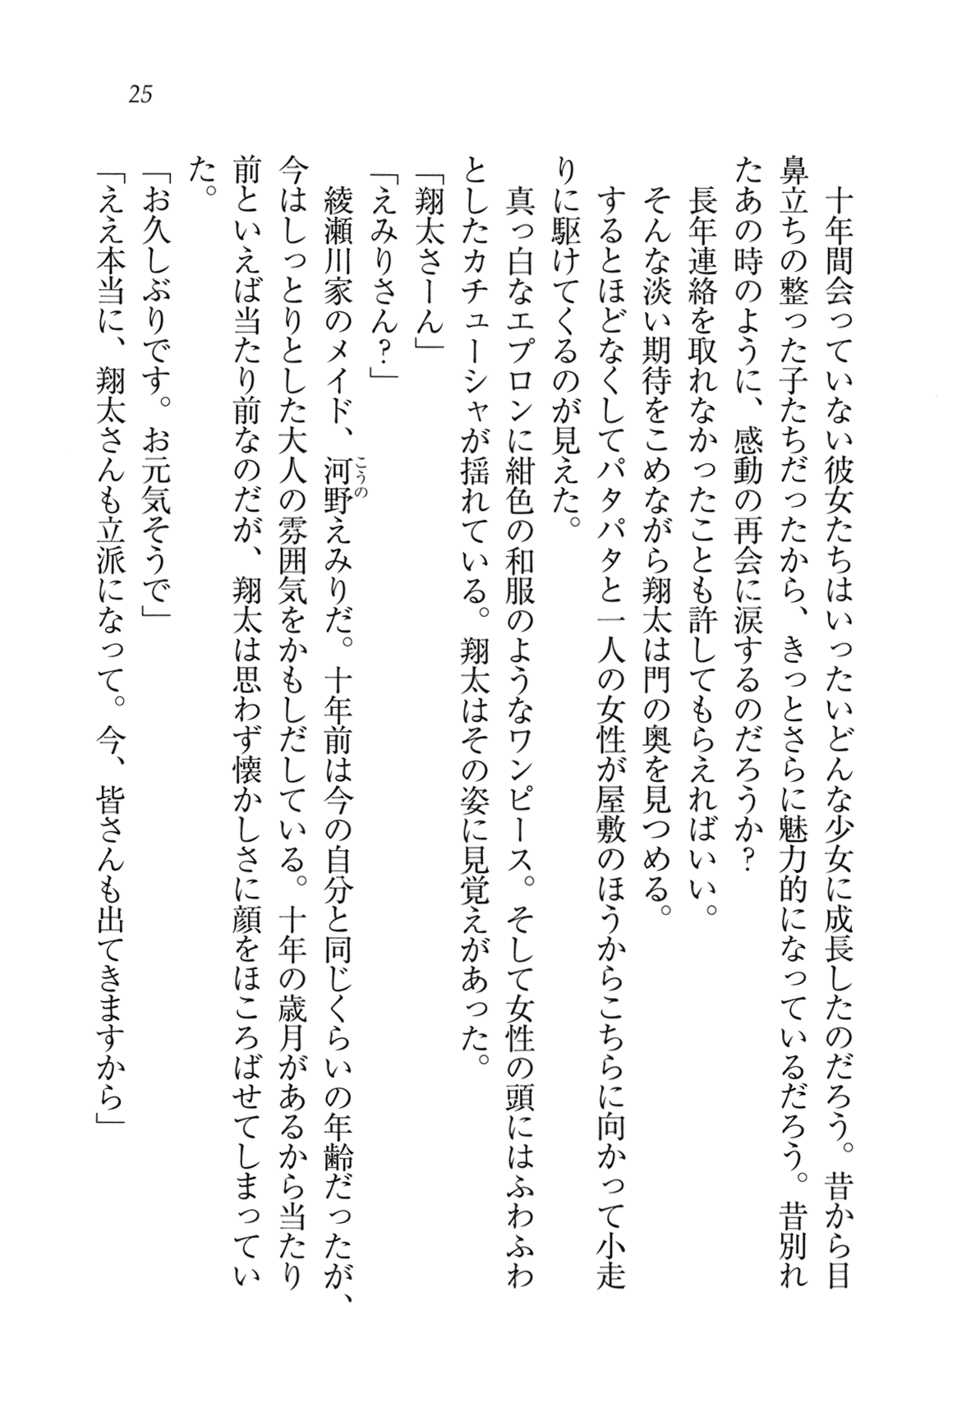 25
十年間会っていない彼女たちはいったいどんな少女に成長したのだろう。昔から目
鼻立ちの整った子たちだったから、きっとさらに魅力的になっているだろう。昔別れ
たあの時のように、感動の再会に涙するのだろうか？
長年連絡を取れなかったことも許してもらえればいい。
そんな淡い期待をこめながら翔太は門の奥を見つめる。
するとほどなくしてパタパタと一人の女性が屋敷のほうからこちらに向かって小走
りに駆けてくるのが見えた。
真っ白なエプロンに紺色の和服のようなワンピース。そして女性の頭にはふわふわ
としたカチューシャが揺れている。翔太はその姿に見覚えがあった。
「翔太さーん」
「えみりさん？」
綾瀬川家のメイド、河野えみりだ。十年前は今の自分と同じくらいの年齢だったが、
こうの
今はしっとりとした大人の雰囲気をかもしだしている。十年の歳月があるから当たり
前といえば当たり前なのだが、翔太は思わず懐かしさに顔をほころばせてしまってい
た。
「お久しぶりです。お元気そうで」
「ええ本当に、翔太さんも立派になって。今、皆さんも出てきますから」